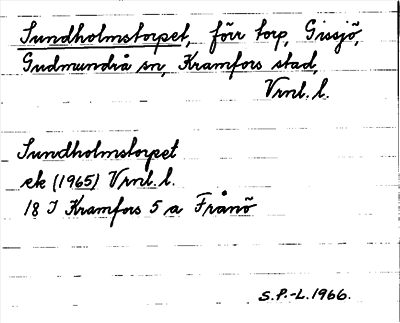 Sundholmstorpet, förr torp, Gissjö,
Gudmundrå sn, Kramfors stad,
Vrnl. l.
Sundholmstorpet
ek (1965) Vrnl. l.
18 I Kramfors 5 a Frånö
S.P.-L. 1966.